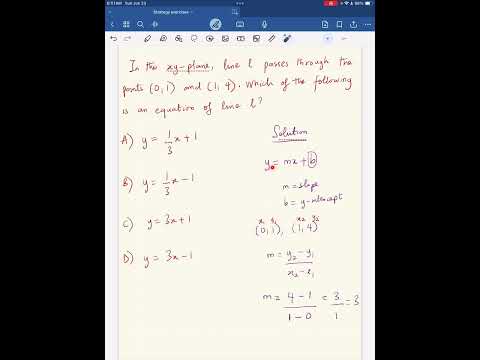 6:11 AM Sun Jun 23
Strategy exercises
In the xy-plane, line l passes through the
points (0,1) and (1,4). Which of the following
is an equation of line l?
A) y = 1/3 x + 1
B) y = 1/3 x - 1
C) y = 3x + 1
D) y = 3x - 1
Solution
y = mx + b
m = slope
b = y-intercept
x₁ y₁ x₂ y₂
(0,1), (1,4)
m = y₂ - y₁ / x₂ - x₁
m = 4 - 1 / 1 - 0 = 3/1 = 3